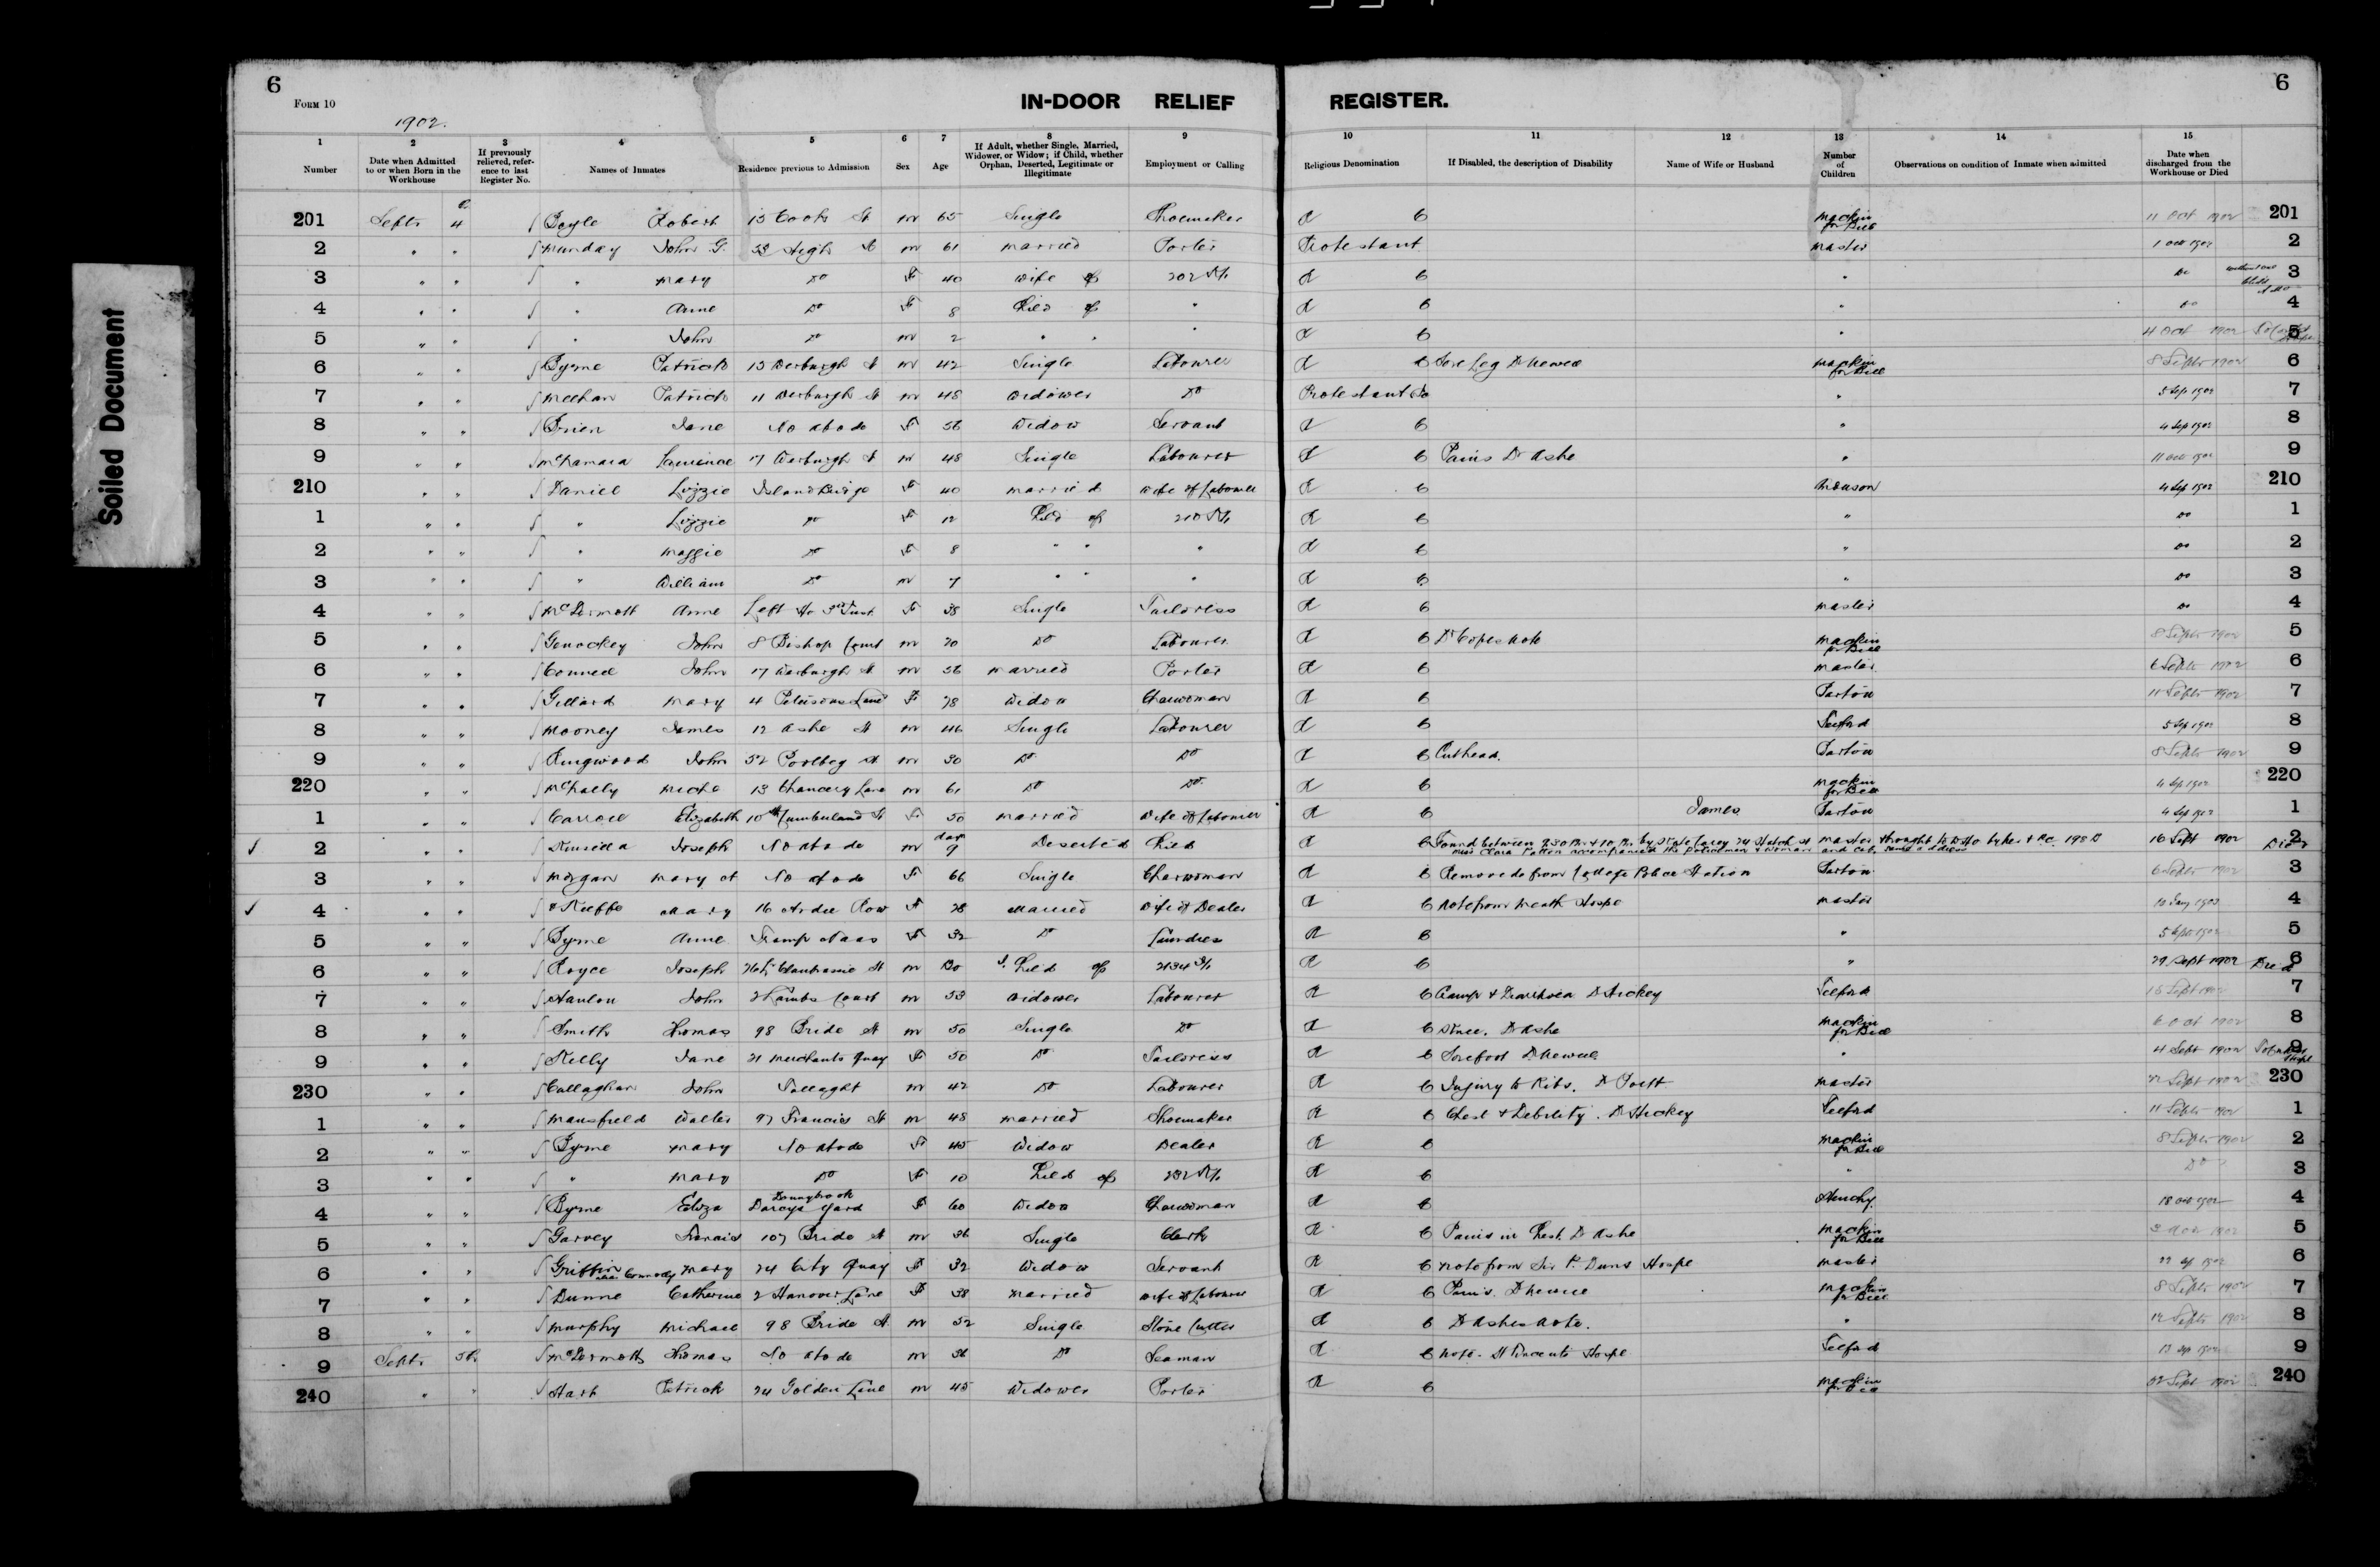 Soiled Document
6
FORM 10
IN-DOOR RELIEF REGISTER.
6
1902.
1 Number
2 Date when Admitted to or when Born in the Workhouse
3 If previously relieved, reference to last Register No.
4 Names of Inmates
5 Residence previous to Admission
6 Sex
7 Age
8 If Adult, whether Single, Married, Widower, or Widow; if Child, whether Orphan, Deserted, Legitimate or Illegitimate
9 Employment or Calling
10 Religious Denomination
11 If Disabled, the description of Disability
12 Name of Wife or Husband
13 Number of Children
14 Observations on condition of Inmate when admitted
15 Date when discharged from the Workhouse or Died
201 Septr 4 Boyle Robert 15 Cook St m 65 Single Shoemaker R C Mackin for Bell 11 Oct 1902 201
2 " " Munday John G. High St m 61 married Porter Protestant master 1 Oct 1902 2
3 " " " Mary Do F 40 wife of 202 R C " Do 3
4 " " " Anne Do F 8 Child of " R C " Do 4
5 " " " John Do m 2 " " " R C " 4 Oct 1902 5
6 " " Byrne Patrick 15 Werburgh St m 42 Single Labourer R C Sore Leg Mackin for Bell 8 Septr 1902 6
7 " " Meehan Patrick 11 Werburgh St m 48 widower Do Protestant " 5 Sep 1902 7
8 " " Brien Jane No abode F 56 Widow Servant R C " 4 Sep 1902 8
9 " " McNamara Laurence 17 Werburgh St m 48 Single Labourer R C Pains Dr Ashe " 11 Oct 1902 9
210 " " Daniel Lizzie Island Bridge F 40 married wife of Labourer R C 4 Sep 1902 210
1 " " " Lizzie Do F 12 Child of 210 R C " Do 1
2 " " " Maggie Do F 8 " " " R C " Do 2
3 " " " William Do m 7 " " " R C " Do 3
4 " " McDermott Anne Left Ho 3rd Inst F 38 Single Tailoress R C master Do 4
5 " " John 8 Bishop Court m 70 Do Labourer R C Mackin for Bell 8 Septr 1902 5
6 " " Connell John 17 Werburgh St m 56 married Porter R C master 6 Septr 1902 6
7 " " Gillard Mary 4 Petersons Lane F 78 Widow Charwoman R C Parton 11 Septr 1902 7
8 " " Mooney James 12 Ashe St m 46 Single Labourer R C Telford 5 Sep 1902 8
9 " " Ringwood John 52 Poolbeg St m 30 Do Do R C Cut head. Parton 8 Septr 1902 9
220 " " McNally Michl 13 Chancery Lane m 61 Do Do R C Mackin for Bell 4 Sep 1902 220
1 " " Carroll Elizabeth 10 Cumberland St F 50 married wife of Labourer R C James Parton 4 Sep 1902 1
2 " " Kinsella Joseph No abode m days 9 Deserted Child R C Found between 9.30 PM & 10 PM by Kate Carey 24 Hatch St master brought to W Ho by & P.C. 198 B 16 Sept 1902 Died 2
Miss Clara Patton accompanied the policeman & woman and
3 " " Morgan Mary A No abode F 66 Single Charwoman R C Removed from College Police Station Parton 6 Septr 1902 3
4 " " O'Keeffe Mary 16 Ardee Row F 28 Married wife of Dealer R C Note from Meath Hospl master 10 Jany 1903 4
5 " " Byrne Anne Tramp Naas F 32 Do Laundress R C " 5 Sept 1902 5
6 " " Royce Joseph Clanbrassil St m Child of 2134 R C " 29 Sept 1902 Died 6
7 " " Hanlon John 2 Lambs Court m 53 widower Labourer R C Cramp & Diarrhoea Dr Hickey Telford 15 Sept 1902 7
8 " " Smith Thomas 98 Bride St m 50 Single Do R C Dr Ashe Mackin for Bell 6 Oct 1902 8
9 " " Kelly Jane 21 Merchants Quay F 50 Do Tailoress R C Sore foot " 4 Sept 1902 9
230 " " Callaghan John Tallaght m 42 Do Labourer R C Injury to Ribs. master 22 Sept 1902 230
1 " " Mansfield Walter 97 Francis St m 48 married Shoemaker R C Chest & Debility. Dr Hickey Telford 11 Septr 1902 1
2 " " Byrne Mary No abode F 45 Widow Dealer R C Mackin for Bell 8 Septr 1902 2
3 " " " Mary Do F 10 Child of 232 R C " Do 3
4 " " Byrne Eliza Donnybrook Darcys Yard F 60 Widow Charwoman R C 18 Oct 1902 4
5 " " Garvey Francis 107 Bride St m 36 Single Clerk R C Pains in Chest. Dr Ashe Mackin for Bell 1902 5
6 " " Griffin Mary 24 City Quay F 32 Widow Servant R C Note from Sir P. Duns Hospl master 22 Sep 1902 6
7 " " Dunne Catherine 2 Hanover Lane F 38 married wife of Labourer R C Pains. Mackin for Bell 8 Septr 1902 7
8 " " Murphy Michael 98 Bride St m 52 Single Stone Cutter R C Dr Ashes note. " 12 Septr 1902 8
9 Septr 5th McDermott Thomas No abode m 36 Do Seaman R C Note. St Vincents Hospl Telford 13 Sep 1902 9
240 " " Hart Patrick 24 Golden Lane m 45 Widower Porter R C Mackin for Bell 22 Sept 1902 240